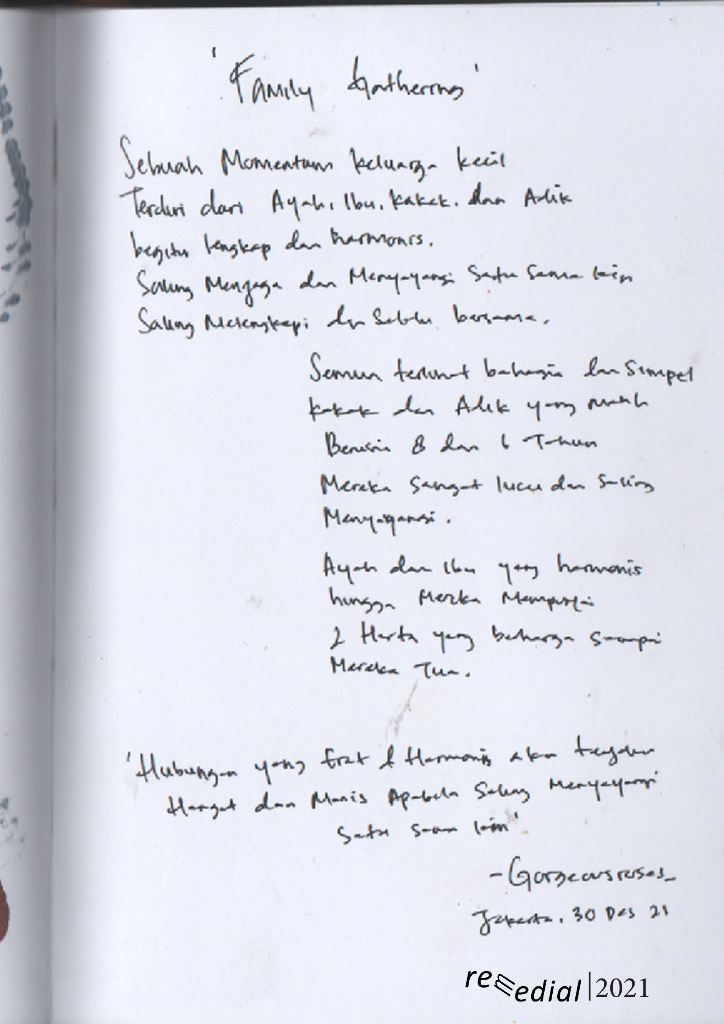 'Family Gatherings'
Sebuah Momentum keluarga kecil
Terdiri dari Ayah, Ibu, kakak, dan Adik
begitu lengkap dan harmonis.
Saling Menjaga dan Menyayangi Satu Sama lain
Saling Melengkapi dan Selalu bersama.
Semua terlihat bahagia dan Simpel
kakak dan Adik yang masih
Berusia 8 dan 6 Tahun
Mereka Sangat lucu dan Saling
Menyayangi.
Ayah dan Ibu yang harmonis
hingga Mereka Mempunyai
2 Harta yang berharga Sampai
Mereka Tua.
'Hubungan yang Erat & Harmonis akan
Hangat dan Manis Apabila Saling Menyayangi
Satu Sama lain'
-Gorgeousroses_
Jakarta, 30 Des 21
remedial | 2021